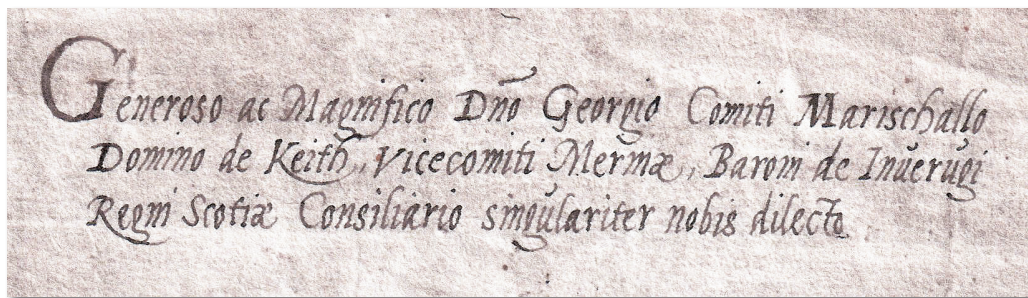 Generoso ac Magnifico Dño Georgio Comiti Marischallo
Domino de Keith, Vicecomiti Merniæ, Baroni de Inuerugi
Regni Scotiæ Consiliario singulariter nobis dilecto